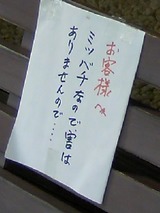 お客様へ
ミツバチなので害は
ありませんので....